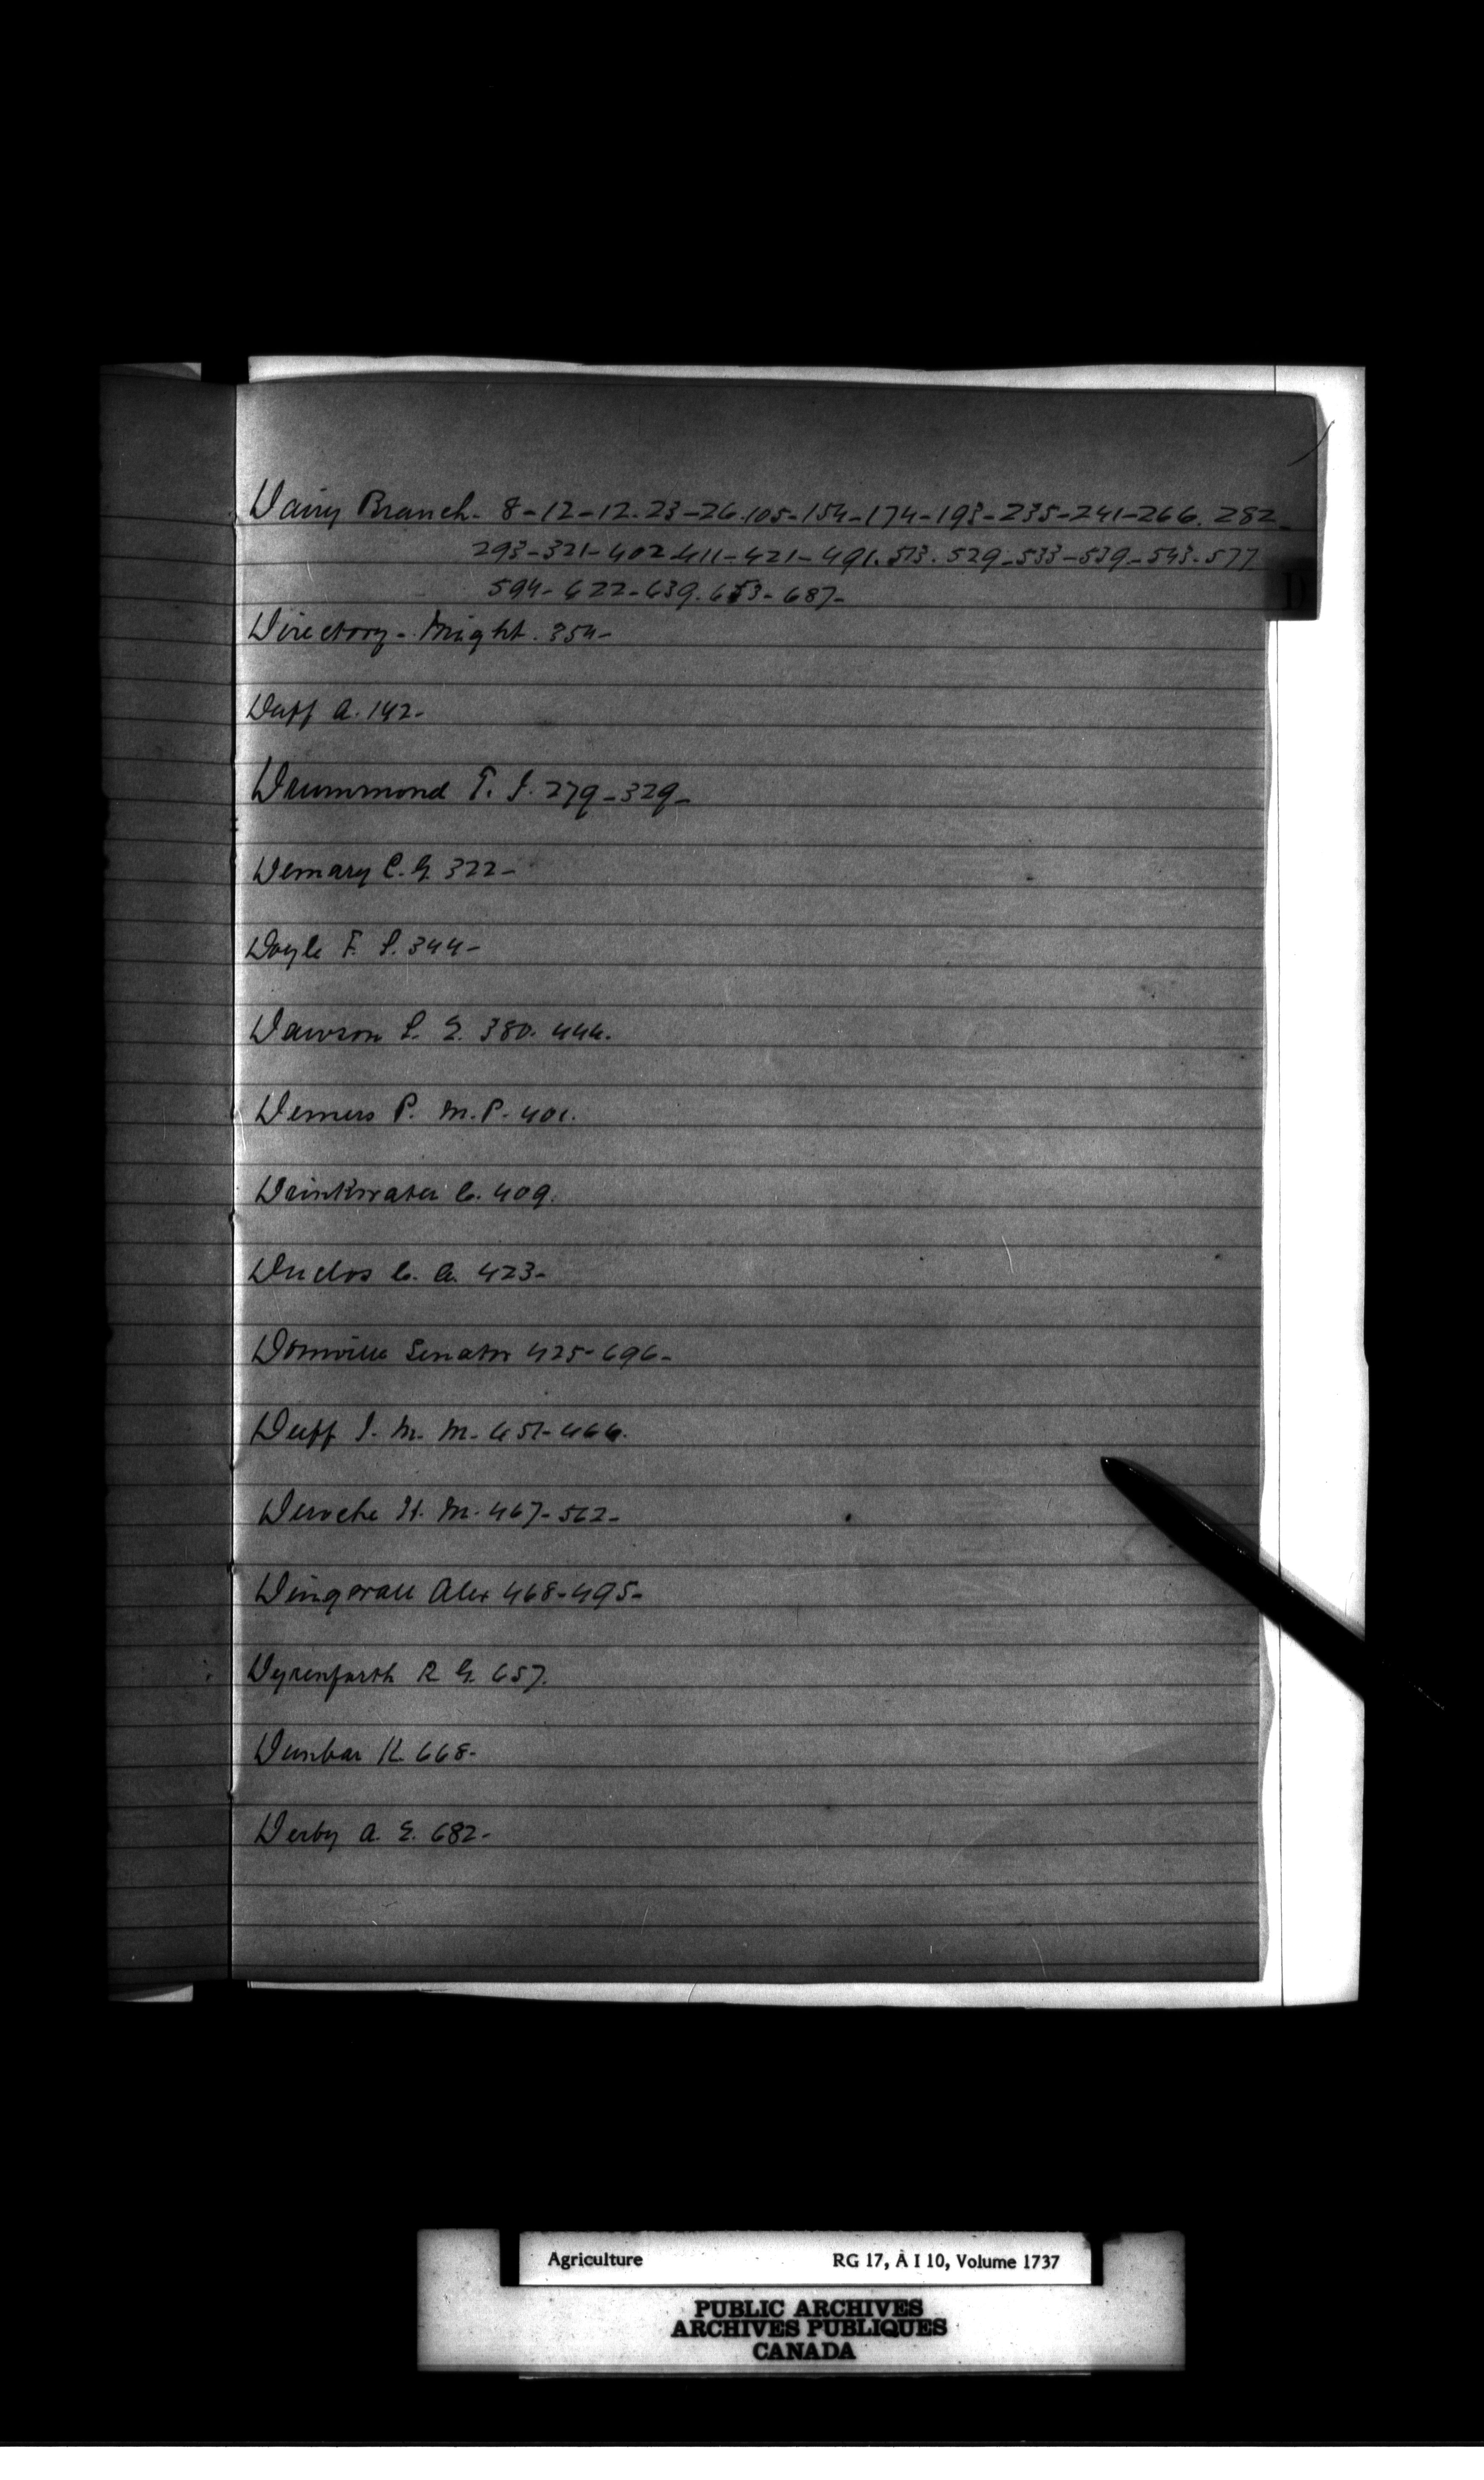 Dairy Branch - 8-12-12.23-26.105-154-174-193-235-241-266.282-
293-321-402-411-421-491.513.529-533-539-543-577
594-622-639.653-687-
D
Directory - Might. 354-
Duff A. 142-
Drummond T. J. 279-329-
Demary C. G. 322-
Doyle F. P. 344-
Dawson S. E. 380. 444.
Demers P. M.P. 401.
Drinkwater C. 409.
Duclos C. A. 423-
Domville Senator 425-696-
Duff J. M. M. 451-466.
Deroche H. M. 467-562-
Dingwall Alex 468-495-
Dyrenfurth R G. 657.
Dunbar R. 668-
Derby A. E. 682-
Agriculture RG 17, A I 10, Volume 1737
PUBLIC ARCHIVES
ARCHIVES PUBLIQUES
CANADA